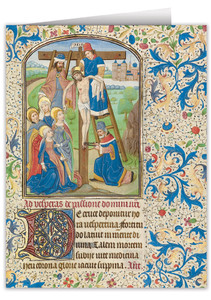 Ad vesperas de passione domini
De cruce deponitur ho
ra vespertina fortitu
do latuit in mente di
uina Talem mortem
subiit vite medicina
heu corona glorie iacuit supina